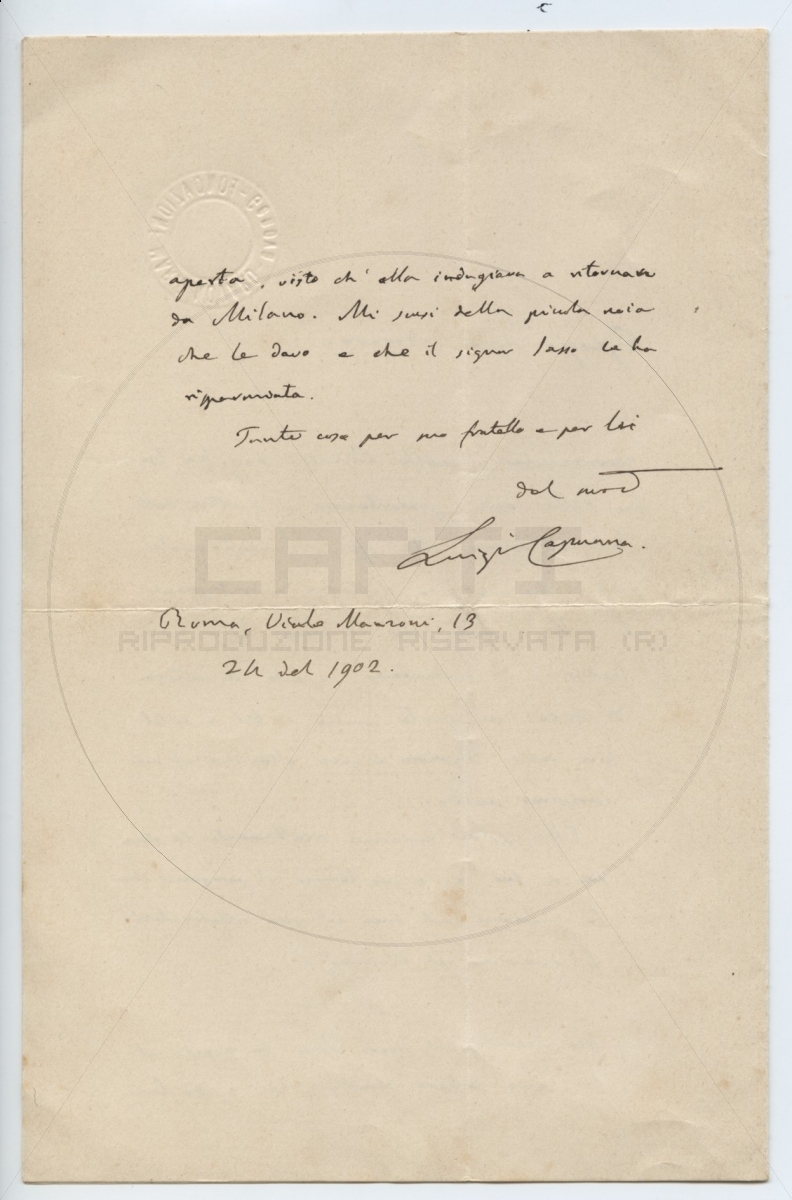 aperta, visto ch'ella indugiava a ritornare
da Milano. Mi scusi della piccola noia
che le davo e che il signor Sasso le ha
risparmiata.
Tante cose per suo fratello e per Lei
dal suo
Luigi Capuana.
Roma, Viale Manzoni, 13
del 1902.
CARTI
RIPRODUZIONE RISERVATA (R)